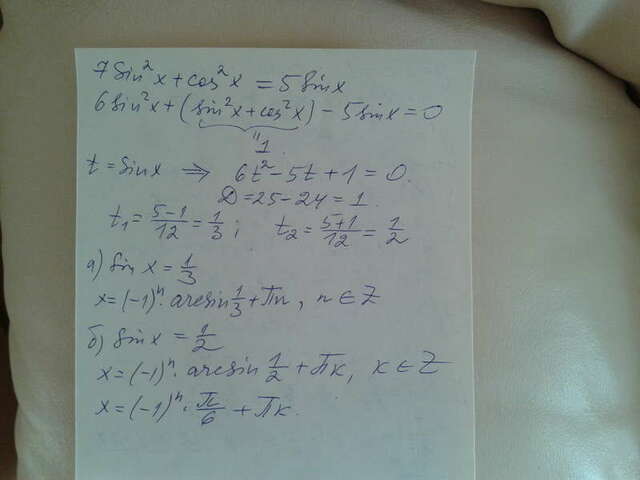 7 sin²x + cos²x = 5 sin x
6 sin²x + (sin²x + cos²x) - 5 sin x = 0
" 1.
t = sin x ⇒ 6t² - 5t + 1 = 0.
D = 25 - 24 = 1.
t₁ = (5-1)/12 = 1/3; t₂ = (5+1)/12 = 1/2
а) sin x = 1/3
x = (-1)ⁿ · arcsin 1/3 + πn, n ∈ Z
б) sin x = 1/2
x = (-1)ⁿ · arcsin 1/2 + πк, к ∈ Z
x = (-1)ⁿ · π/6 + πк.